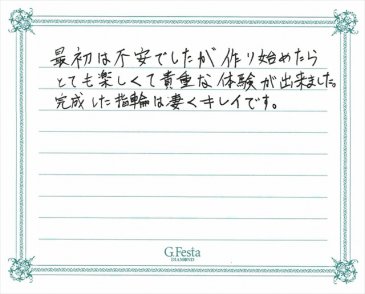 最初は不安でしたが作り始めたら
とても楽しくて貴重な体験が出来ました。
完成した指輪は凄くキレイです。
G.Festa
DIAMOND